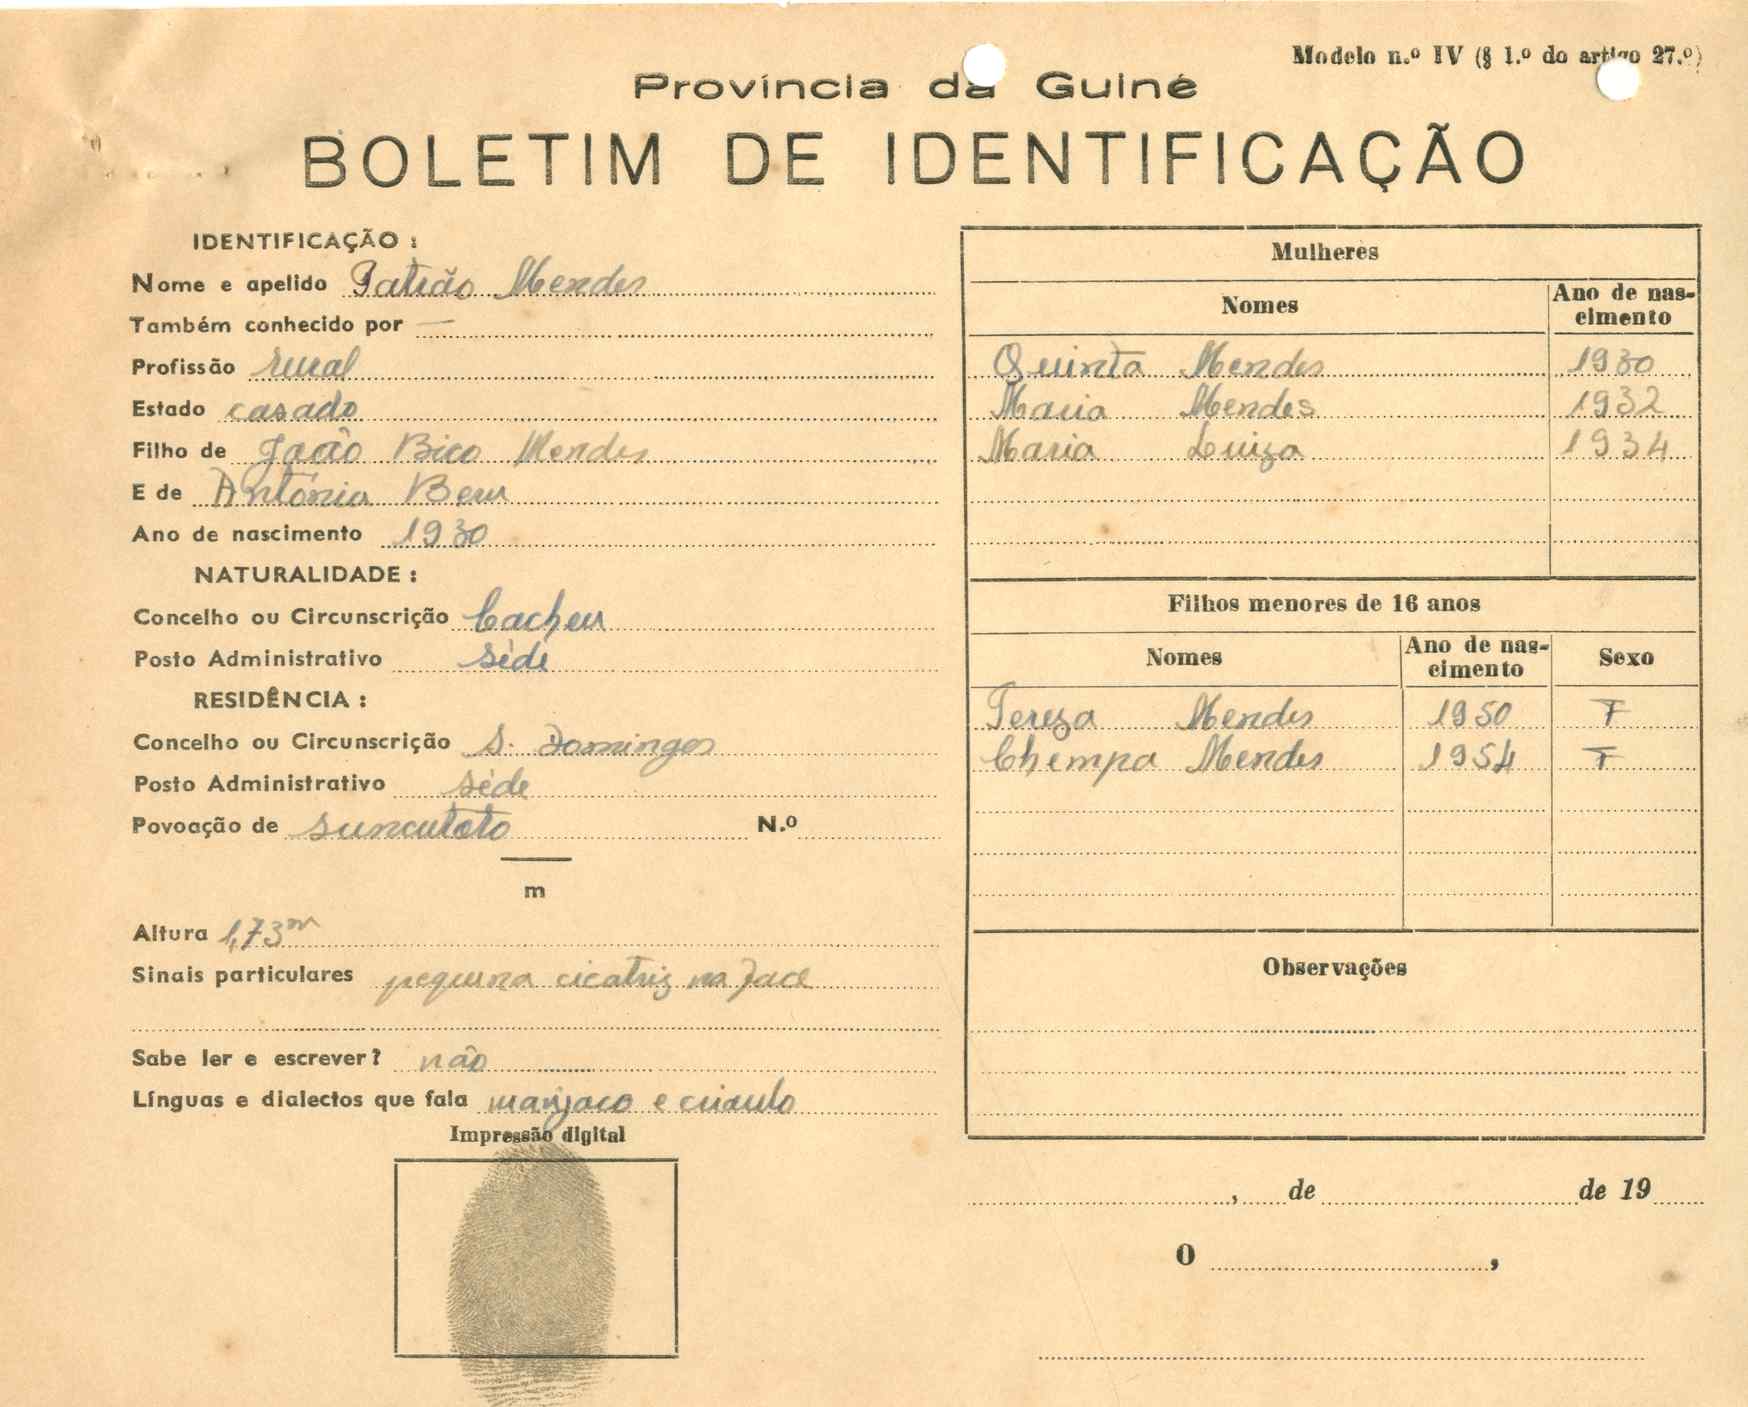 Modelo n.º IV (§ 1.º do artigo 27.º)
Província da Guiné
BOLETIM DE IDENTIFICAÇÃO
IDENTIFICAÇÃO :
Nome e apelido Patrão Mendes
Também conhecido por —
Profissão rural
Estado casado
Filho de João Bico Mendes
E de Antónia Beru
Ano de nascimento 1930
NATURALIDADE :
Concelho ou Circunscrição Cacheu
Posto Administrativo séde
RESIDÊNCIA :
Concelho ou Circunscrição S. Domingos
Posto Administrativo séde
Povoação de suncutoto N.º
m
Altura 1,73m
Sinais particulares pequena cicatriz na face
Sabe ler e escrever? não
Línguas e dialectos que fala manjaco e crioulo
Impressão digital
Mulheres
Nomes Ano de nas-cimento
Quinta Mendes 1930
Maria Mendes 1932
Maria Luiza 1934
Filhos menores de 16 anos
Nomes Ano de nas-cimento Sexo
Tereza Mendes 1950 F
Chempa Mendes 1954 F
Observações
, de de 19
O ,